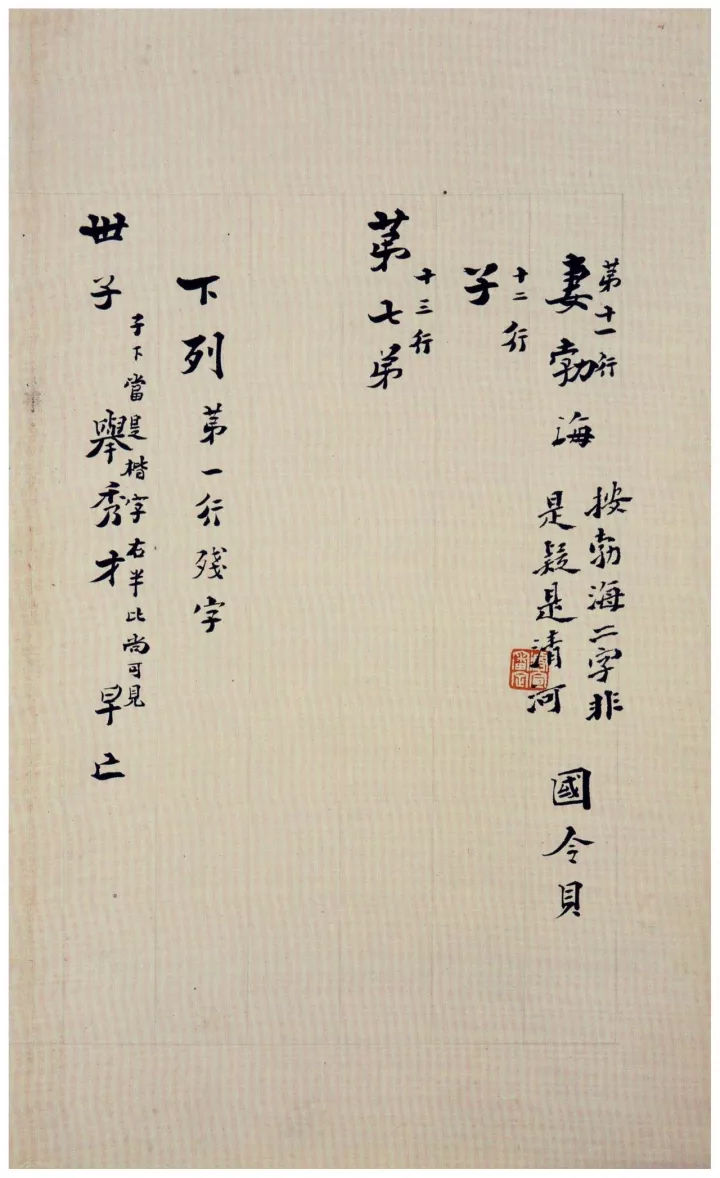 第十一行
妻勃海
按勃海二字非
是疑是清河
國令貝
十二行
子
十三行
第七弟
下列
第一行殘字
世子
子下當是楷字右半比尚可見
舉秀才
早亡